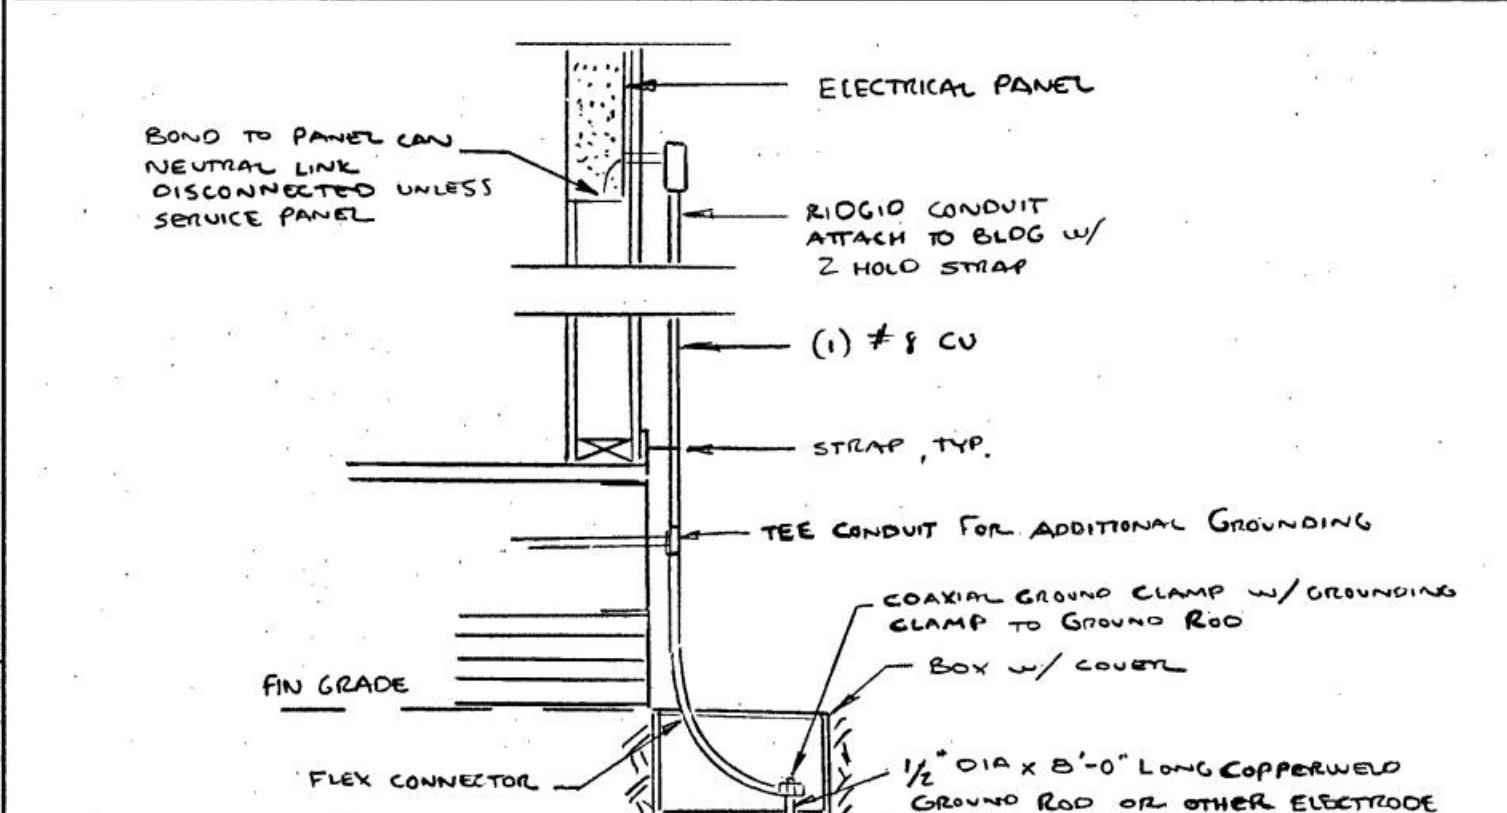 ELECTRICAL PANEL
BOND TO PANEL CAN
NEUTRAL LINK
DISCONNECTED UNLESS
SERVICE PANEL
RIDGID CONDUIT
ATTACH TO BLDG W/
2 HOLD STRAP
(1) # 8 CU
STRAP, TYP.
TEE CONDUIT FOR ADDITIONAL GROUNDING
COAXIAL GROUND CLAMP W/ GROUNDING
CLAMP TO GROUND ROD
BOX W/ COVER
FIN GRADE
FLEX CONNECTOR
1/2" DIA X 8'-0" LONG COPPERWELD
GROUND ROD OR OTHER ELECTRODE